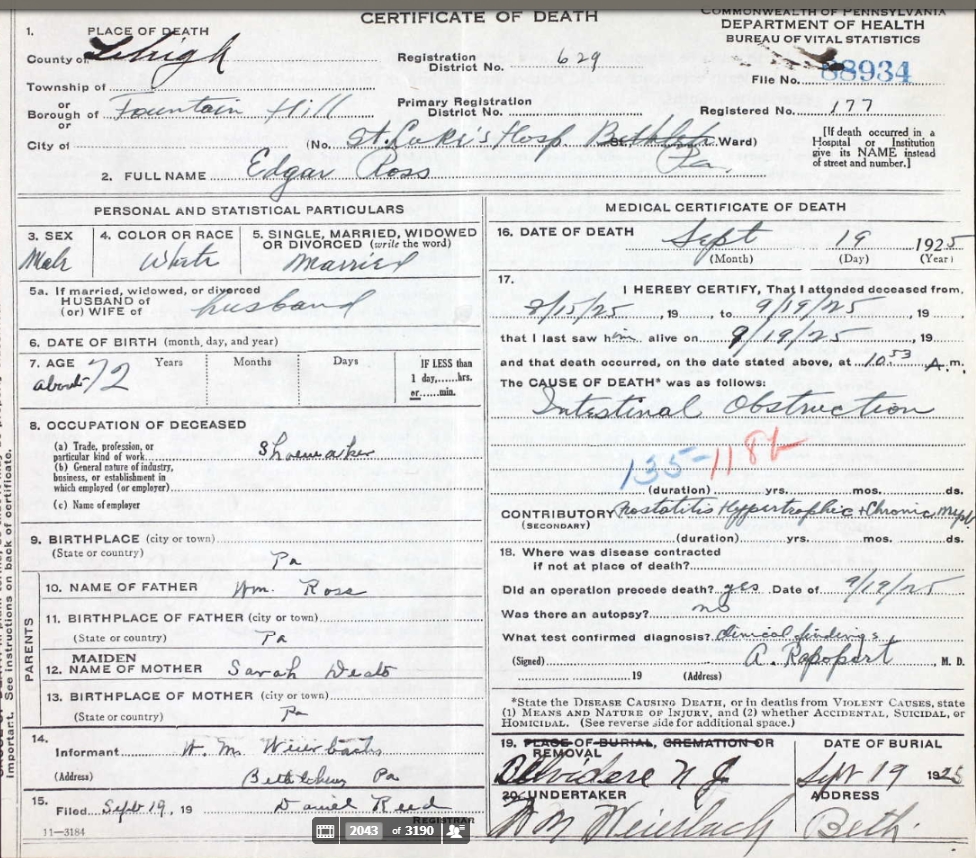 CERTIFICATE OF DEATH
COMMONWEALTH OF PENNSYLVANIA
DEPARTMENT OF HEALTH
BUREAU OF VITAL STATISTICS
1. PLACE OF DEATH
County of Lehigh
Registration District No. 629
File No. 88934
Township of
or
Borough of Fountain Hill
Primary Registration District No.
Registered No. 177
or
City of
(No. St. Luke's Hosp. Bethlehem Pa. St. Ward)
[If death occurred in a Hospital or Institution give its NAME instead of street and number.]
2. FULL NAME Edgar Ross
PERSONAL AND STATISTICAL PARTICULARS
3. SEX Male
4. COLOR OR RACE White
5. SINGLE, MARRIED, WIDOWED OR DIVORCED (write the word) Married
5a. If married, widowed, or divorced
HUSBAND of
(or) WIFE of husband
6. DATE OF BIRTH (month, day, and year)
7. AGE Years Months Days
about 72
IF LESS than
1 day,......hrs.
or......min.
8. OCCUPATION OF DECEASED
(a) Trade, profession, or particular kind of work Shoemaker
(b) General nature of industry, business, or establishment in which employed (or employer)
(c) Name of employer
9. BIRTHPLACE (city or town)
(State or country) Pa
PARENTS
10. NAME OF FATHER Wm. Ross
11. BIRTHPLACE OF FATHER (city or town)
(State or country) Pa
12. MAIDEN NAME OF MOTHER Sarah
13. BIRTHPLACE OF MOTHER (city or town)
(State or country) Pa
14.
Informant W. M. Weierbach
(Address) Bethlehem Pa
15.
Filed Sept 19, 19 Daniel Reed
REGISTRAR
11—3184
MEDICAL CERTIFICATE OF DEATH
16. DATE OF DEATH Sept 19 1925
(Month) (Day) (Year)
17.
I HEREBY CERTIFY, That I attended deceased from
8/15/25, 19 to 9/19/25, 19
that I last saw him alive on 9/19/25, 19
and that death occurred, on the date stated above, at 10.53 A. m.
The CAUSE OF DEATH* was as follows:
Intestinal Obstruction
135-118b
(duration) yrs. mos. ds.
CONTRIBUTORY Prostatitis Hypertrophic + Chronic
(SECONDARY)
(duration) yrs. mos. ds.
18. Where was disease contracted
if not at place of death?
Did an operation precede death? yes Date of 9/19/25
Was there an autopsy? no
What test confirmed diagnosis? clinical findings
(Signed) A. Rapoport, M. D.
19 (Address)
*State the DISEASE CAUSING DEATH, or in deaths from VIOLENT CAUSES, state
(1) MEANS AND NATURE OF INJURY, and (2) whether ACCIDENTAL, SUICIDAL, or
HOMICIDAL. (See reverse side for additional space.)
19. PLACE OF BURIAL, CREMATION OR REMOVAL
Belvidere N J
DATE OF BURIAL
Sept 19 1925
20. UNDERTAKER
W M Weierbach
ADDRESS
Beth.
Important. See instructions on back of certificate.
2043 of 3190